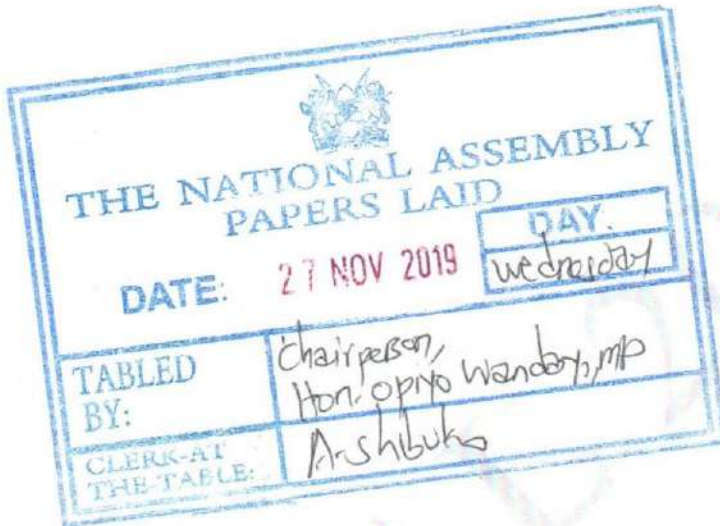 THE NATIONAL ASSEMBLY
PAPERS LAID
DATE: 27 NOV 2019
DAY.
wednesday
TABLED
BY:
Chairperson,
Hon. Opiyo Wandayi, MP
CLERK-AT
THE-TABLE:
A-shibuko